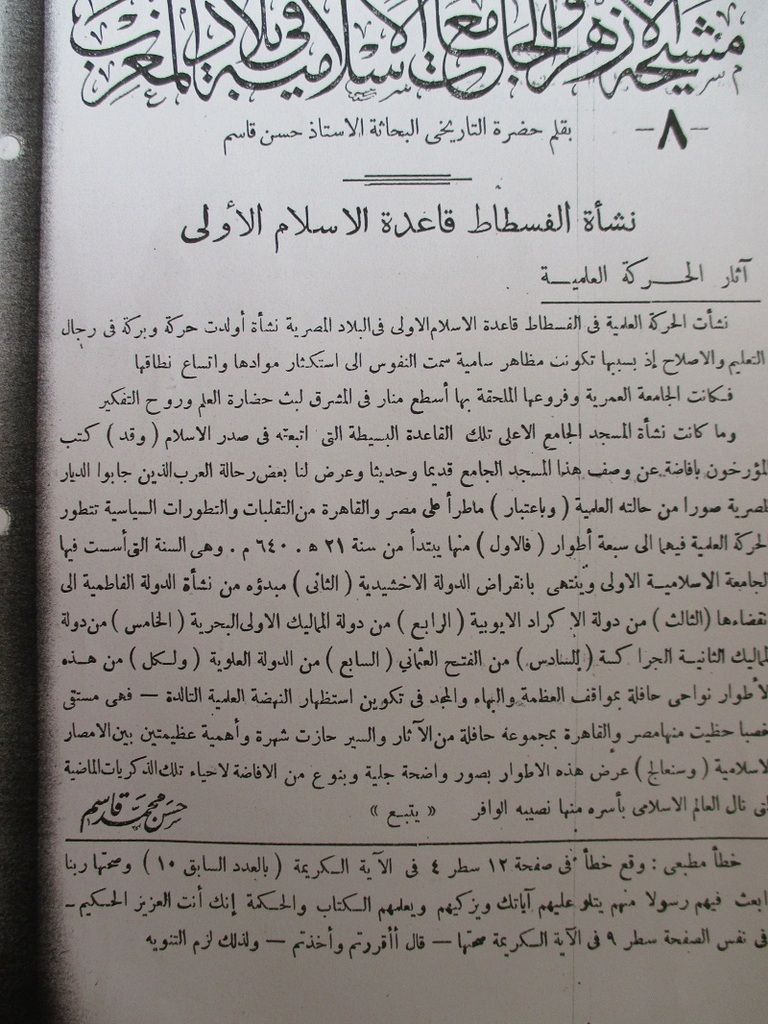 مشيخة الأزهر والجامعات الاسلامية في بلاد المغرب
-٨- بقلم حضرة التاريخى البحاثة الاستاذ حسن قاسم
نشأة الفسطاط قاعدة الاسلام الأولى
آثار الحركة العلمية
نشأت الحركة العلمية فى الفسطاط قاعدة الاسلام الاولى فى البلاد المصرية نشأة أولدت حركة وبركة فى رجال
التعليم والاصلاح إذ بسببها تكونت مظاهر سامية سمت النفوس الى استكثار موادها واتساع نطاقها
فكانت الجامعة العمرية وفروعها الملحقة بها أسطع منار فى المشرق لبث حضارة العلم وروح التفكير
وما كانت نشأة المسجد الجامع الاعلى تلك القاعدة البسيطة التى اتبعته فى صدر الاسلام ( وقد ) كتب
لمؤرخون بافاضة عن وصف هذا المسجد الجامع قديما وحديثا وعرض لنا بعض رحالة العرب الذين جابوا الديار
لمصرية صورا من حالته العلمية ( وباعتبار ) ماطرأ على مصر والقاهرة من التقلبات والتطورات السياسية تتطور
لحركة العلمية فيهما الى سبعة أطوار ( فالاول ) منها يبتدأ من سنة ٢١ ه . ٦٤٠ م . وهى السنة التى أسست فيها
لجامعة الاسلامية الاولى وينتهى بانقراض الدولة الاخشيدية ( الثانى ) مبدؤه من نشأة الدولة الفاطمية الى
نقضاءها ( الثالث ) من دولة الاكراد الايوبية ( الرابع ) من دولة المماليك الاولى البحرية ( الخامس ) من دولة
لمماليك الثانية الجراكسة ( السادس ) من الفتح العثماني ( السابع ) من الدولة العلوية ( ولكل ) من هذه
لأطوار نواحى حافلة بمواقف العظمة والبهاء والمجد فى تكوين استظهار النهضة العلمية التالدة — فهى مستقى
خصبا حظيت منها مصر والقاهرة بمجموعة حافلة من الآثار والسير حازت شهرة وأهمية عظيمتين بين الامصار
لاسلامية ( وسنعالج ) عرض هذه الاطوار بصور واضحة جلية وبنوع من الافاضة لاحياء تلك الذكريات الماضية
لتى نال العالم الاسلامى بأسره منها نصيبه الوافر « يتبع » حسن محمد قاسم
خطأ مطبعى : وقع خطأ فى صفحة ١٢ سطر ٤ فى الآية الكريمة ( بالعدد السابق ١٠ ) وصحتها ربنا
ابعث فيهم رسولا منهم يتلو عليهم آياتك ويزكيهم ويعلمهم الكتاب والحكمة إنك أنت العزيز الحكيم —
فى نفس الصفحة سطر ٩ فى الآية الكريمة صحتها — قال أأقررتم وأخذتم — ولذلك لزم التنويه